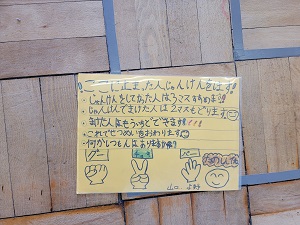 ！ここに止まった人じゃんけんをします！
・じゃんけんをしてかった人は3マスすすめます!!
・じゃんけんでまけた人は2マスもどります
・まけた人はもういちどできます!!!
・これでせつめいをおわります
・何かしつもんはありますか？
グー チョキ パー たのしいな
山口